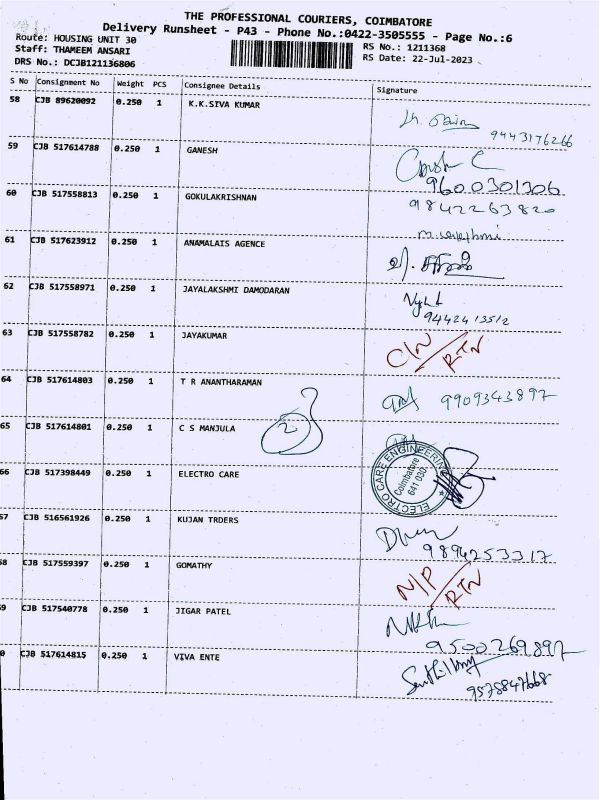 THE PROFESSIONAL COURIERS, COIMBATORE
Delivery Runsheet - P43 - Phone No.:0422-3505555 - Page No.:6
Route: HOUSING UNIT 30
Staff: THAMEEM ANSARI
DRS No.: DCJB121136806
RS No.: 1211368
RS Date: 22-Jul-2023
S No Consignment No Weight PCS Consignee Details Signature
58 CJB 89620092 0.250 1 K.K.SIVA KUMAR
9443176266
59 CJB 517614788 0.250 1 GANESH
9600301306
60 CJB 517558813 0.250 1 GOKULAKRISHNAN
9842263820
61 CJB 517623912 0.250 1 ANAMALAIS AGENCE
62 CJB 517558971 0.250 1 JAYALAKSHMI DAMODARAN
9442413512
63 CJB 517558782 0.250 1 JAYAKUMAR C/N/RTN
64 CJB 517614803 0.250 1 T R ANANTHARAMAN 9909343897
65 CJB 517614801 0.250 1 C S MANJULA 2
66 CJB 517398449 0.250 1 ELECTRO CARE
ELECTRO CARE ENGINEERING
Coimbatore
641 030.
67 CJB 516561926 0.250 1 KUJAN TRDERS
9894253317
68 CJB 517559397 0.250 1 GOMATHY N/P/RTN
69 CJB 517540778 0.250 1 JIGAR PATEL
9500269897
0 CJB 517614815 0.250 1 VIVA ENTE
9575847668